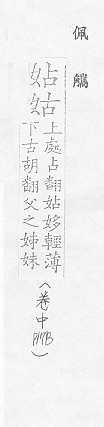 佩觿
姑姑
上處占翻姑姼輕薄
下古胡翻父之姊妹
(卷中117B)